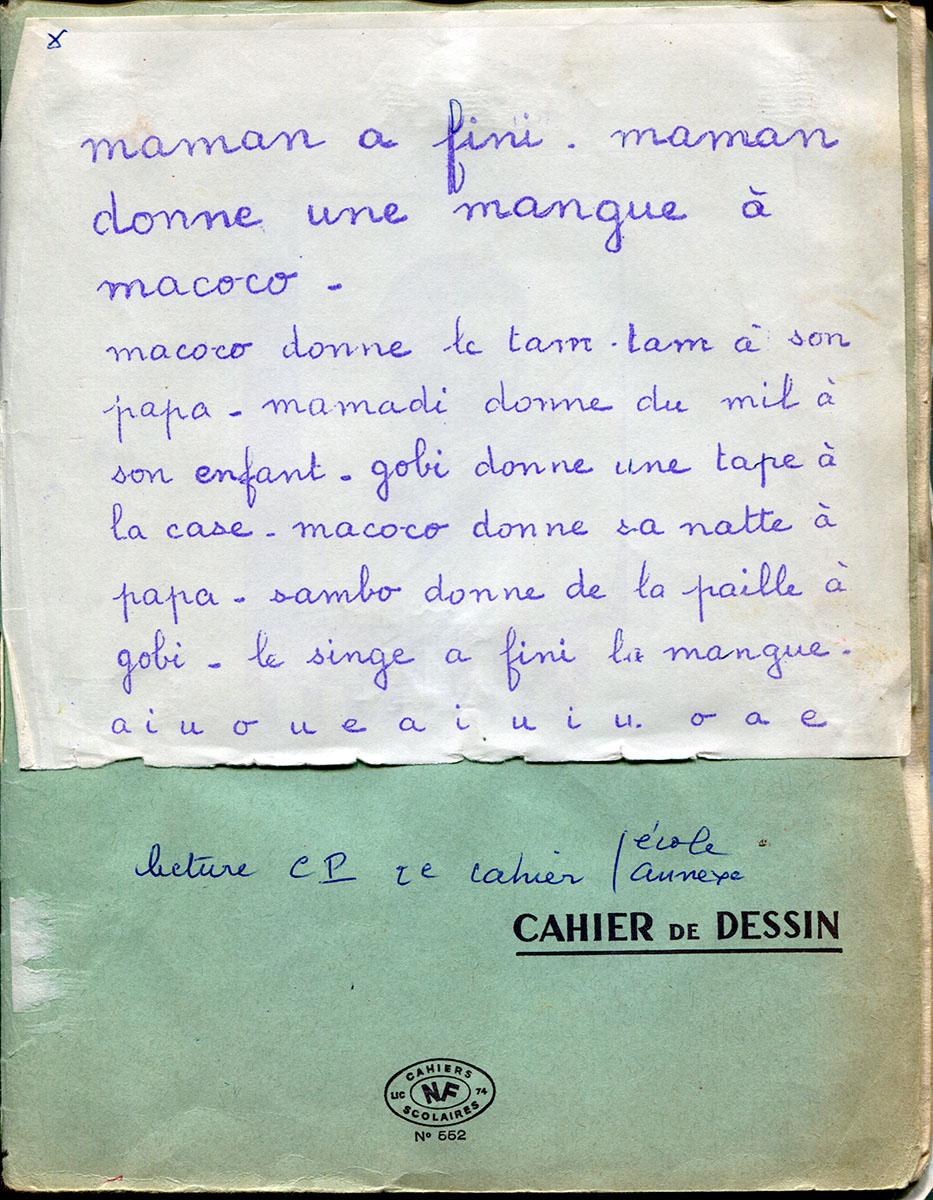 x
maman a fini . maman
donne une mangue à
macoco -
macoco donne le tam-tam à son
papa - mamadi donne du mil à
son enfant - gobi donne une tape à
la case - macoco donne sa natte à
papa - sambo donne de la paille à
gobi - le singe a fini la mangue -
a i u o u e a i u i u. o a e
lecture CP 2e cahier / école annexe
CAHIER DE DESSIN
CAHIERS
LIC NF 74
SCOLAIRES
No 552